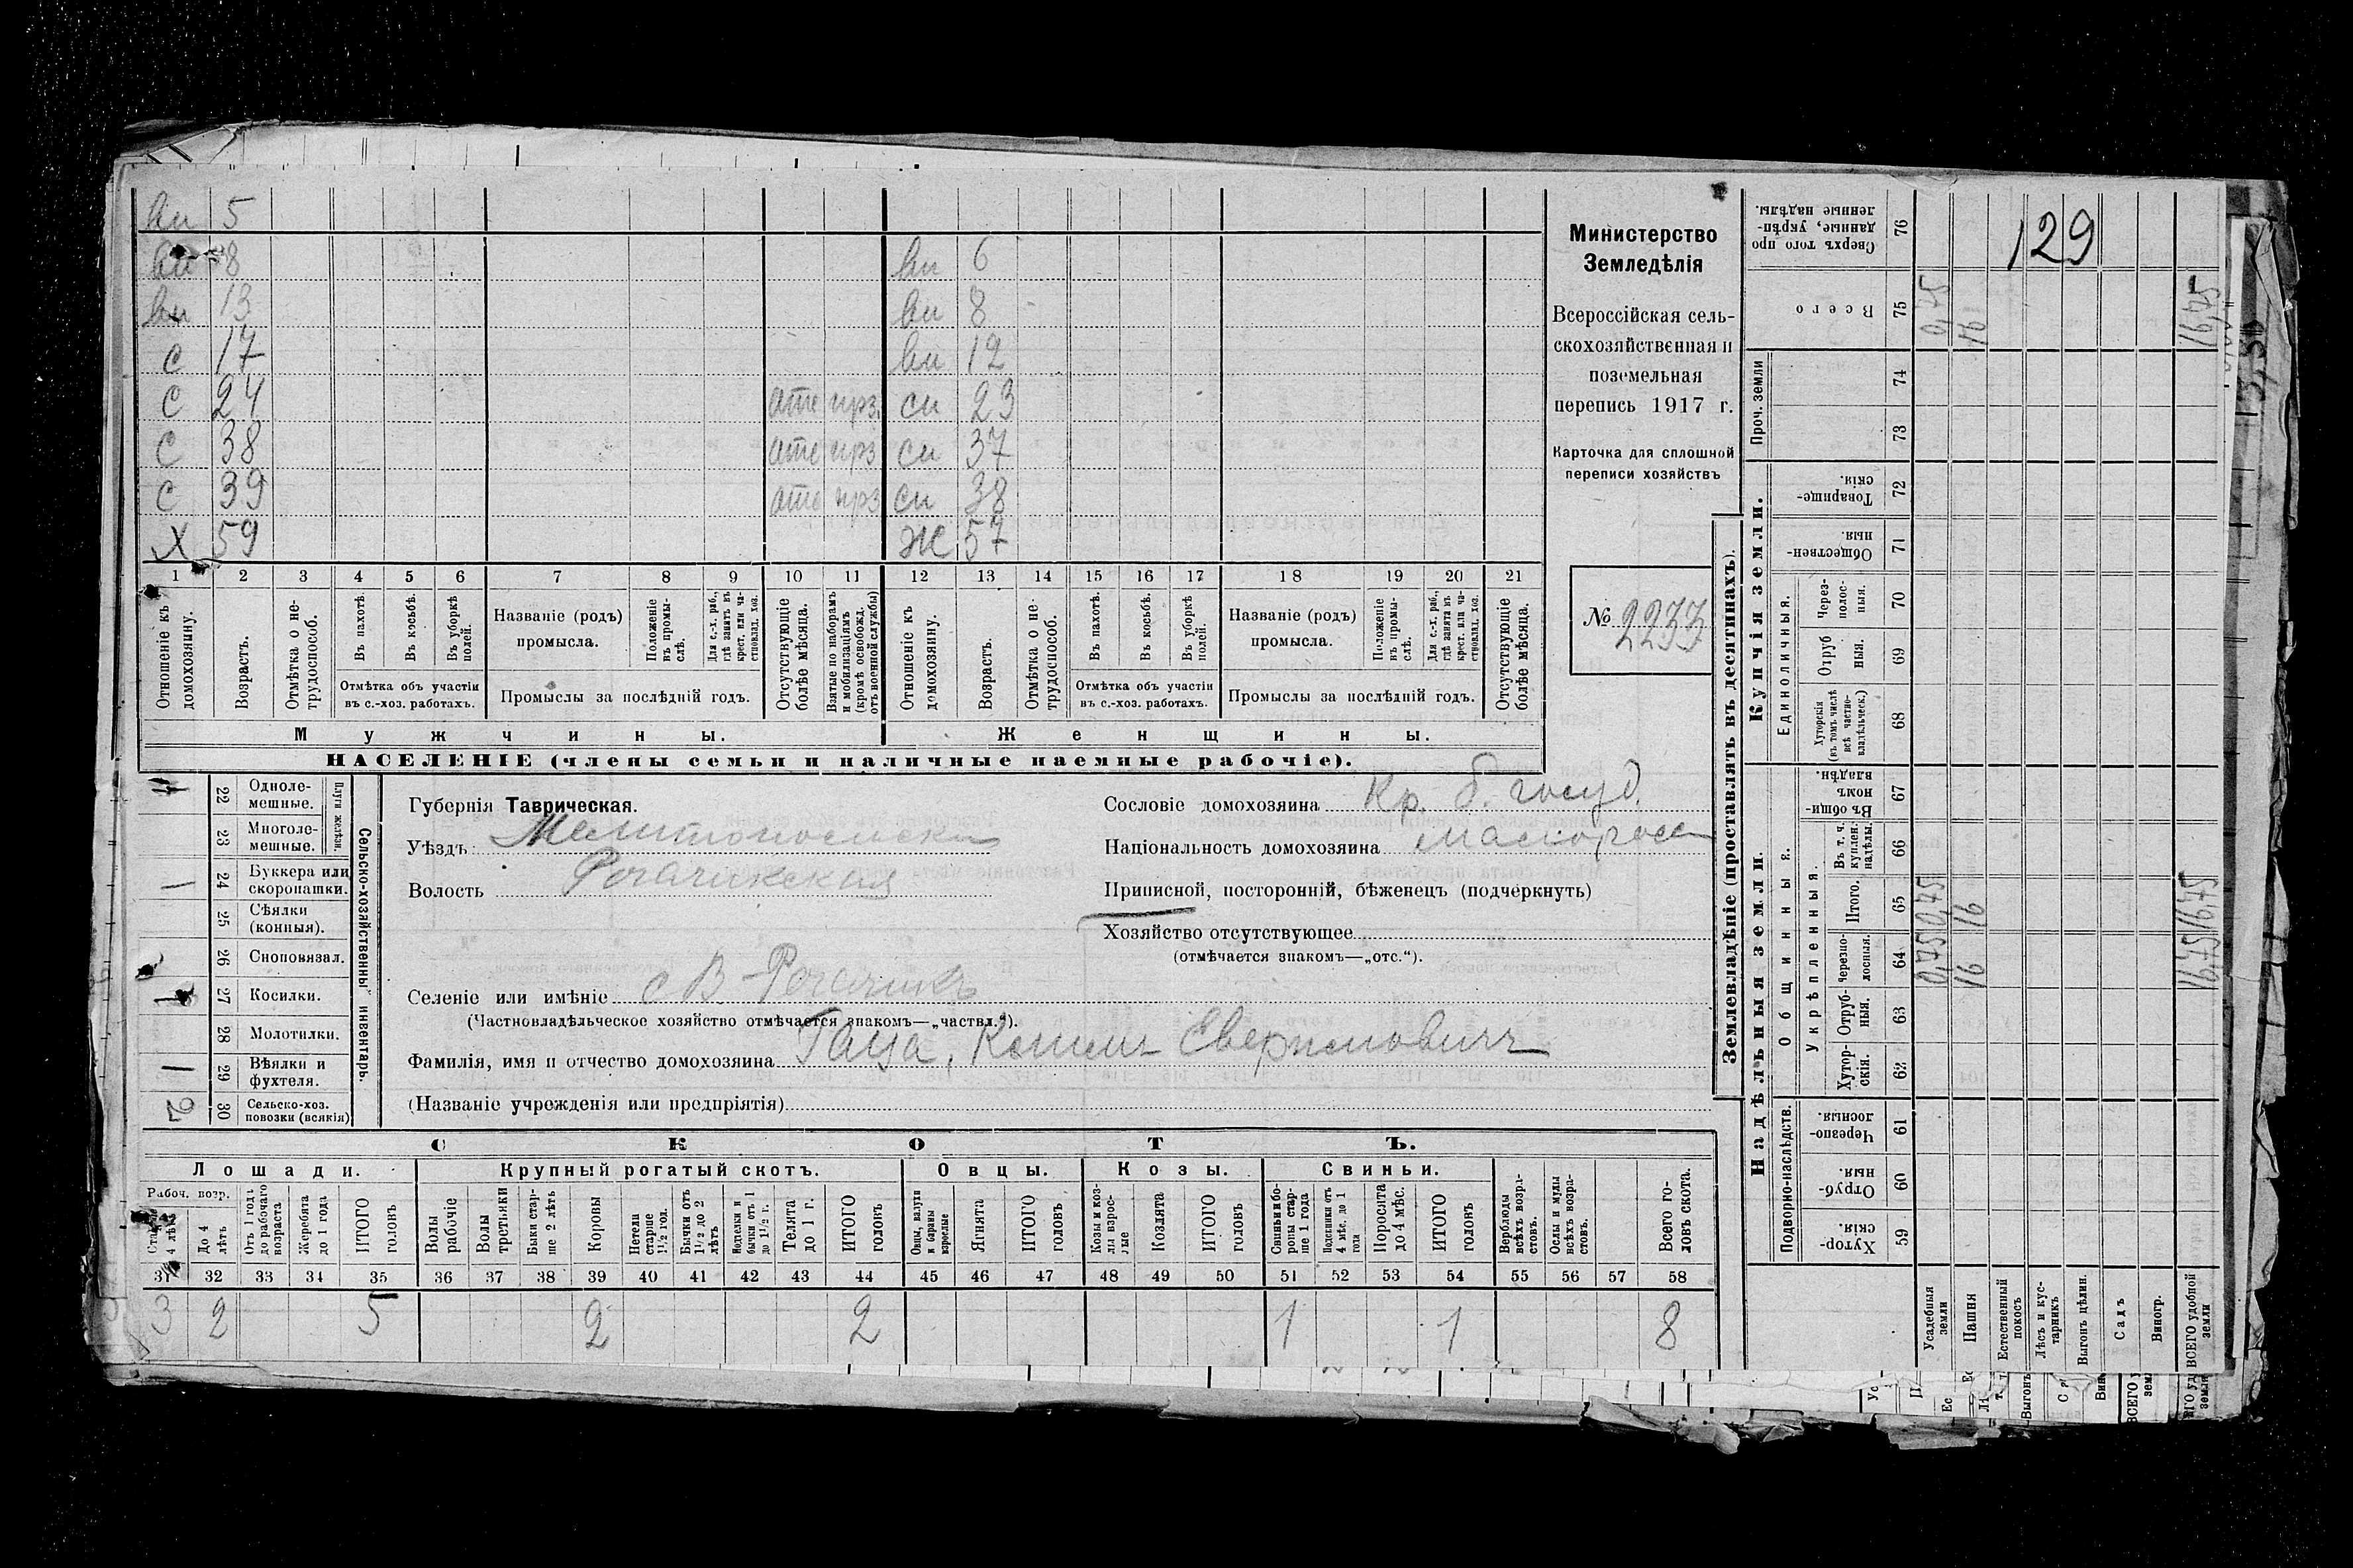 129
ви 5
ви 8 ви 6
ви 13 ви 8
с 17 ви 12
с 24 отс прз. си 23
с 38 отс прз си 37
с 39 отс прз си 38
Х 59 Ж 57
1 2 3 4 5 6 7 8 9 10 11 12 13 14 15 16 17 18 19 20 21
Отношеніе къ домохозяину.
Возрастъ.
Отмѣтка о не-трудоспособ.
Въ пахотѣ.
Въ косьбѣ.
Въ уборкѣ полей.
Отмѣтка объ участіи въ с.-хоз. работахъ.
Названіе (родъ) промысла.
Положеніе въ промы-слѣ.
Для с.-х. раб., гдѣ занятъ въ крест. или ча-стновлад. хоз.
Промыслы за послѣдній годъ.
Отсутствующіе болѣе мѣсяца.
Взятые по наборамъ и мобилизаціямъ (кромѣ освобожд. отъ военной службы)
Отношеніе къ домохозяину.
Возрастъ.
Отмѣтка о не-трудоспособ.
Въ пахотѣ.
Въ косьбѣ.
Въ уборкѣ полей.
Отмѣтка объ участіи въ с.-хоз. работахъ.
Названіе (родъ) промысла.
Положеніе въ промы-слѣ.
Для с.-х. раб., гдѣ занятъ въ крест. или ча-стновлад. хоз.
Промыслы за послѣдній годъ.
Отсутствующіе болѣе мѣсяца.
Мужчины. Женщины.
НАСЕЛЕНІЕ (члены семьи и наличные наемные рабочіе).
Министерство
Земледѣлія
Всероссійская сель-
скохозяйственная и
поземельная
перепись 1917 г.
Карточка для сплошной
переписи хозяйствъ
№ 2233
Сельско-хозяйственный инвентарь.
Плуги желѣзн.
22 Одноле-мешные.
23 Многоле-мешные.
1 24 Буккера или скоропашки.
25 Сѣялки (конныя).
26 Сноповязал.
1 27 Косилки.
28 Молотилки.
1 29 Вѣялки и фухтеля.
2 30 Сельско-хоз. повозки (всякія)
Губернія Таврическая.
Уѣздъ: Мелитопольски
Волость Рогачикская
Сословіе домохозяина Кр. б. госуд.
Національность домохозяина малоросс
Приписной, посторонній, бѣженецъ (подчеркнуть)
Хозяйство отсутствующее
(отмѣчается знакомъ—„отс.“).
Селеніе или имѣніе с В-Рогачикъ
(Частновладѣльческое хозяйство отмѣчается знакомъ—„частвл.“).
Фамилія, имя и отчество домохозяина Гаца,
(Названіе учрежденія или предпріятія)
СКОТЪ.
Лошади. Крупный рогатый скотъ. Овцы. Козы. Свиньи.
Рабоч. возр.
До 4 лѣтъ
Отъ 1 года до рабочаго возраста
Жеребята до 1 года
ИТОГО головъ
Волы рабочіе
Волы третьяки
Быки стар-ше 2 лѣтъ
Коровы
Нетели старше 1½ год.
Бычки отъ 1½ до 2 лѣтъ
Телята до 1 г.
ИТОГО головъ
Овцы, валухи и бараны взрослые
Ягнята
ИТОГО головъ
Козы и коз-лы взрос-лые
Козлята
ИТОГО головъ
Свиньи и бо-ровы стар-ше 1 года
Подсвинки отъ 4 мѣс. до 1 года
Поросята до 4 мѣс.
ИТОГО головъ
Верблюды всѣхъ возра-стовъ.
Ослы и мулы всѣхъ возра-стовъ.
Всего го-ловъ скота.
31 32 33 34 35 36 37 38 39 40 41 42 43 44 45 46 47 48 49 50 51 52 53 54 55 56 57 58
3 2 5 2 2 1 1 8
Землевладѣніе (проставлять въ десятинахъ).
Надѣльныя земли. Купчія земли. Проч. земли
Подворно-наслѣдств.
Общинныя.
Укрѣпленныя.
Единоличныя.
59 Хутор-скія.
60 Отруб-ныя.
61 Черезпо-лосныя.
62 Хутор-скія.
63 Отруб-ныя.
64 Черезпо-лосныя.
65 Итого.
66 Въ т. ч. куплен. надѣлы.
67 Въ общи-номъ владѣн.
68 Хуторскія (въ томъ числѣ всѣ частно-владѣльческ.)
69 Отруб ныя.
70 Через-полос-ныя.
71 Обществен-ныя.
72 Товарище-скія.
73
74
75 Всего
76 Сверхъ того про данные, укрѣп-ленные надѣлы.
Усадебныя земли 0,75 0,75 0,75
Пашня 16 16 16
Естественный покосъ
Лѣсъ и кус-тарникъ
Выгонъ цѣлин.
Садъ
Виногр.
ВСЕГО удобной земли 16,75 16,75 16,75